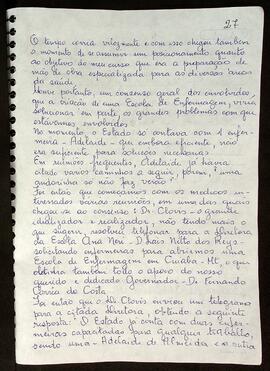 27
O tempo corria velozmente e com isso chegou também
o momento de se assumir um posicionamento quanto
ao objetivo do meu curso que era a preparação de
mão de obra especializada para as diversas áreas
da saúde.
Houve portanto, um consenso geral dos envolvidos,
que a criação de uma Escola de Enfermagem, viria
solucionar em parte os grandes problemas com que
estavamos envolvidos.
No momento, o Estado só contava com 1 enfer-
meira - Adelaide - que embora eficiente, não
era suficiente para soluções necessárias.
Em reuniões frequentes, Adelaide já havia
citado varios caminhos a seguir, porém, "uma
andorinha só não faz verão".
Foi então que começamos com os medicos in-
teressados varias reuniões, em uma das quais
chegou-se ao consenso: Dr Clovis seu grande
idealizador e realizador, não tendo mais o
que sugerir, resolveu telefonar para a diretora
da Escola Ana Neri - D. Laís Netto dos Reys -
solicitando enfermeiras para abrirmos uma
Escola de Enfermagem em Cuiabá - Mt, o que
obtinha também todo o apoio do nosso
querido e dedicado Governador - Dr Fernando
Corrêa da Costa.
Foi então que o Dr Clovis enviou um telegrama
para a citada diretora, obtendo a seguinte
resposta: O Estado já conta com duas enfer-
meiras capacitadas para qualquer trabalho,
sendo uma - Adelaide de Almeida e a outra